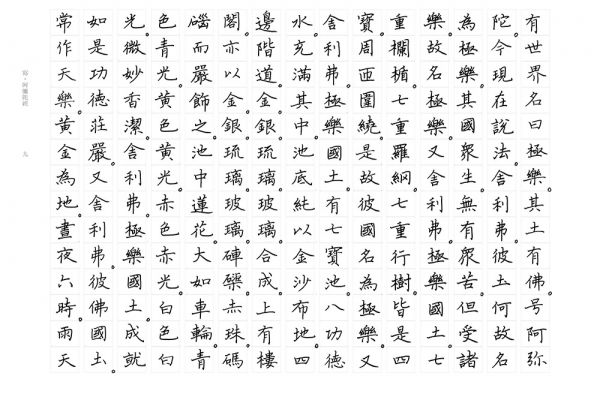 有世界名曰極樂。其土有佛。号阿弥
陀。今現在說法。舍利弗。彼土何故名
為極樂。其國眾生。無有眾苦。但受諸
樂。故名極樂。又舍利弗。極樂國土。七
重欄楯。七重羅網。七重行樹。皆是四
寶。周匝圍繞。是故彼國名為極樂。又
舍利弗。極樂國土。有七寶池。八功德
水。充滿其中。池底純以金沙布地。四
邊階道。金。銀。琉璃。玻璃。合成。上有樓
閣。亦以金。銀。琉璃。玻璃。硨磲。赤珠。碼
碯。而嚴飾之。池中蓮花。大如車輪。青
色青光。黃色黃光。赤色赤光。白色白
光。微妙香潔。舍利弗。極樂國土。成就
如是功德莊嚴。又舍利弗。彼佛國土。
常作天樂。黃金為地。晝夜六時。雨天
寫·阿彌陀經
九